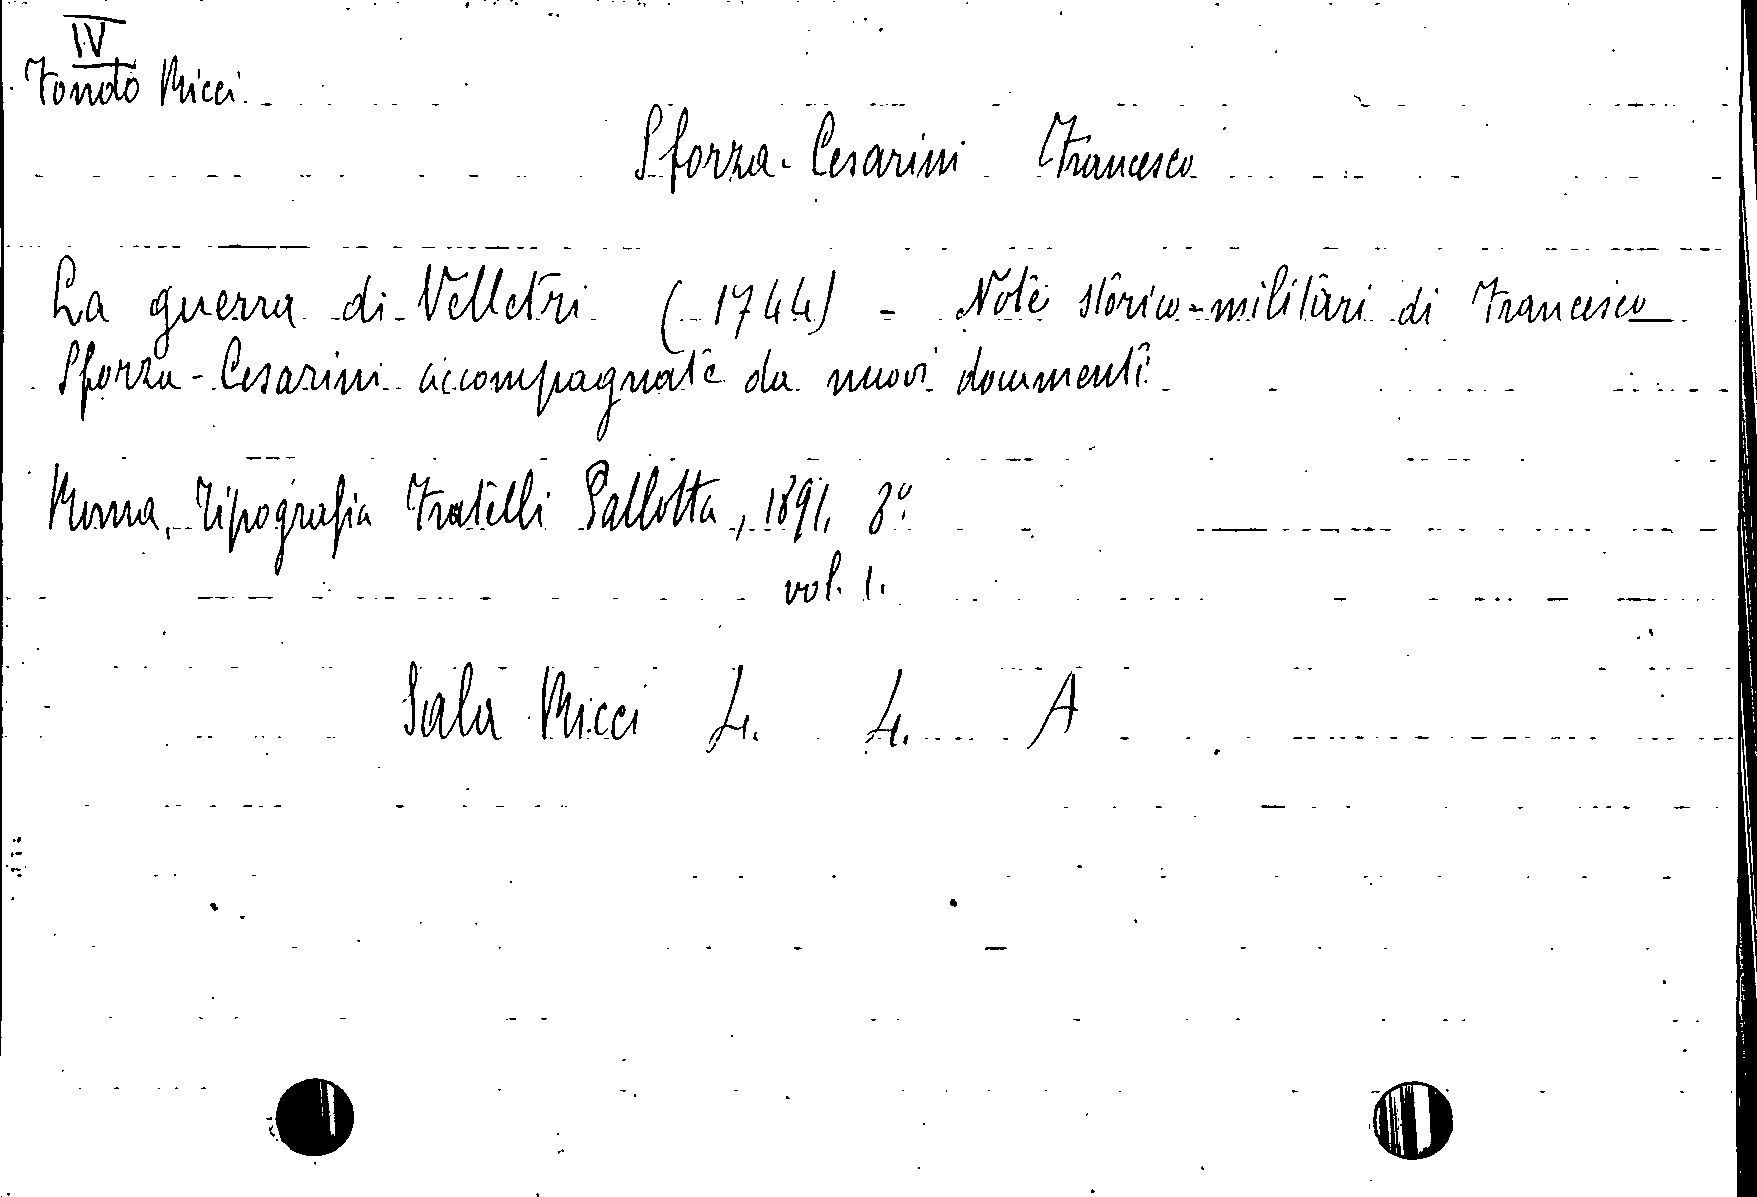 IV
Fondo Ricci
Sforza-Cesarini Francesco
La guerra di Velletri (1744) - Note storico-militari di Francesco
Sforza-Cesarini accompagnate da nuovi documenti
Roma, Tipografia Fratelli Pallotta, 1891. 8°.
vol. 1.
Sala Ricci 4. 4. A